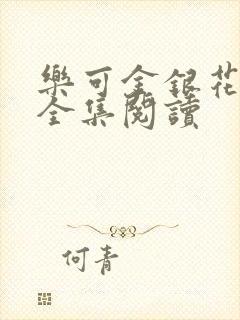 樂可金銀花
全集閱讀
何青